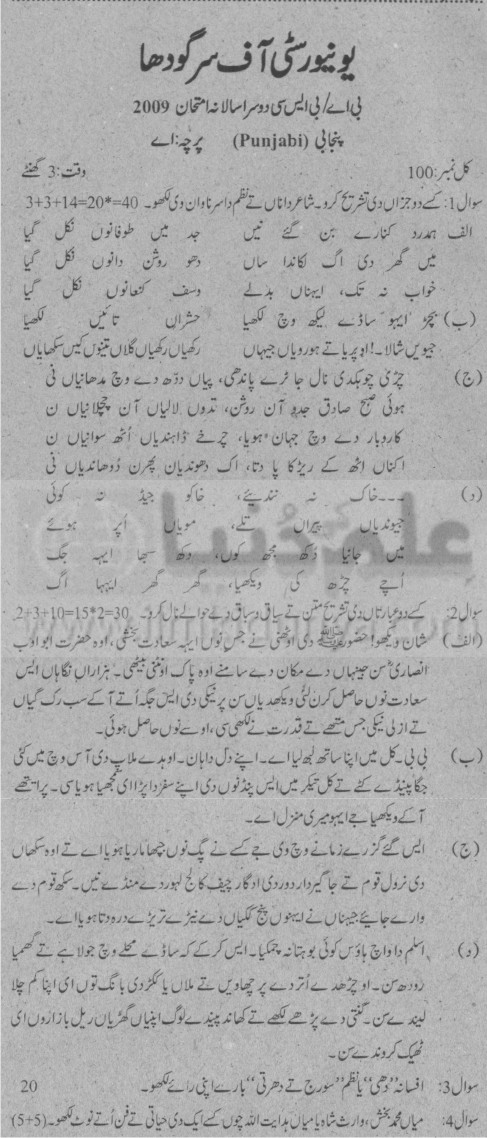 یونیورسٹی آف سرگودھا
بی اے/بی ایس سی دوسرا سالانہ امتحان 2009
پنجابی (Punjabi) پرچہ: اے
کل نمبر: 100 وقت: 3 گھنٹے
سوال 1: کسے دو جزاں دی تشریح کرو۔ شاعر دا ناں تے نظم دا سرناواں وی لکھو۔ 40=*20=14+3+3
الف ہمدرد کنارے بن گئے نیں جد میں طوفانوں نکل گیا
میں گھر دی اگ لکاندا ساں دھو روشن دانوں نکل گیا
خواب نہ تک، ایہناں بدلے وسف کنعانوں نکل گیا
(ب) ہجڑ ایہو ساڈے لیکھ وچ لکھیا حشراں تائیں لکھیا
جیویں شالا! اوپریاتے ہور ویاں جیہاں رکھیاں رکھیاں گلاں تینوں کیں سکھایاں
(ج) چڑی چوہکدی نال جا ٹرے پاندھی، پیاں ددھ دے وچ مدھانیاں نی
ہوئی صبح صادق جدوں آن روشن، تدوں لالیاں آن چچلانیاں ن
کاروبار دے وچ جہان ہویا، چرخے ڈاہندیاں اُٹھ سوانیاں ن
اکناں اٹھ کے رڑکا پا دتا، اک دھوندیاں پھرن دُوھاندیاں نی
(د) ۔۔۔ خاک نہ نندئیے، خاکو جیڈ نہ کوئی
جیوندیاں پیراں تلے، مویاں اُپر ہوئے
میں جانیا دُکھ مجھ کوں، دکھ سبھا ایہہ جگ
اُچے چڑھ کی ویکھیا، گھر گھر ایہا اگ
سوال 2: کسے دو عبارتاں دی تشریح متن تے سیاق و سباق دے حوالے نال کرو۔ 30=2*15=10+3+2
(الف) شان ویکھو! حضور ﷺ دی اوٹھنی نے جس نوں ایہہ سعادت بخشی، اوہ حضرت ابوایوب
انصاری سن جیہناں دے مکان دے سامنے اوہ پاک اونٹنی بیٹھی۔ ہزاراں نگاہاں ایس
سعادت نوں حاصل کرن لئی ویکھدیاں سن پر نیکی دی ایس جگہ اُتے آ کے سب رک گیاں
تے ازلی نیکی جس متھے تے قدرت نے لکھی سی، اوسے نوں حاصل ہوئی۔
(ب) بی بی۔ کل میں اپنا ساتھ لبھ لیا اے۔ اپنے دل دا ہان۔ اوہدے ملاپ دی آس وچ میں کئی
جگا پینڈے کٹے تے کل تیکر میں ایس پنڈ نوں دی اپنے سفر دا پڑا ای سمجھیا ہویا سی۔ پر ایتھے
آکے ویکھیا جے ایہو میری منزل اے۔
(ج) ایس گئے گزرے زمانے وچ وی جے کسے نے پگ نوں چھپا ماریا ہویا اے تے اوہ سکھاں
دی نرول قوم تے جاگیردار دور دی ادگار چیف کالج لہور دے منڈے نیں۔ سکھ قوم دے
وارے جائیے جیہناں نے ایہنوں پنج ککیاں دے نیڑے تریڑے درہ دتا ہویا اے۔
(د) اسلم دا واچ ہاؤس کوئی بوہتا نہ چمکیا۔ ایس کر کے کہ ساڈے محلے وچ جولاہے تے گھمیا
رودھ سن۔ اوہ چڑھدے اُتر دے پرچھاویں تے ملاں یا ککڑ دی بانگ توں ای اپنا کم چلا
لیندے سن۔ گنتی دے پڑھے لکھے تے کھاندے پیندے لوگ اپنیاں گھڑیاں ریل بازاروں ای
ٹھیک کروندے سن۔
سوال 3: افسانہ "دھی" یا نظم "سورج تے دھرتی" بارے اپنی رائے لکھو۔ 20
سوال 4: میاں محمد بخش، وارث شاہ یا میاں ہدایت اللہ چوں کسے ایک دی حیاتی تے فن اُتے نوٹ لکھو۔ (5+5)